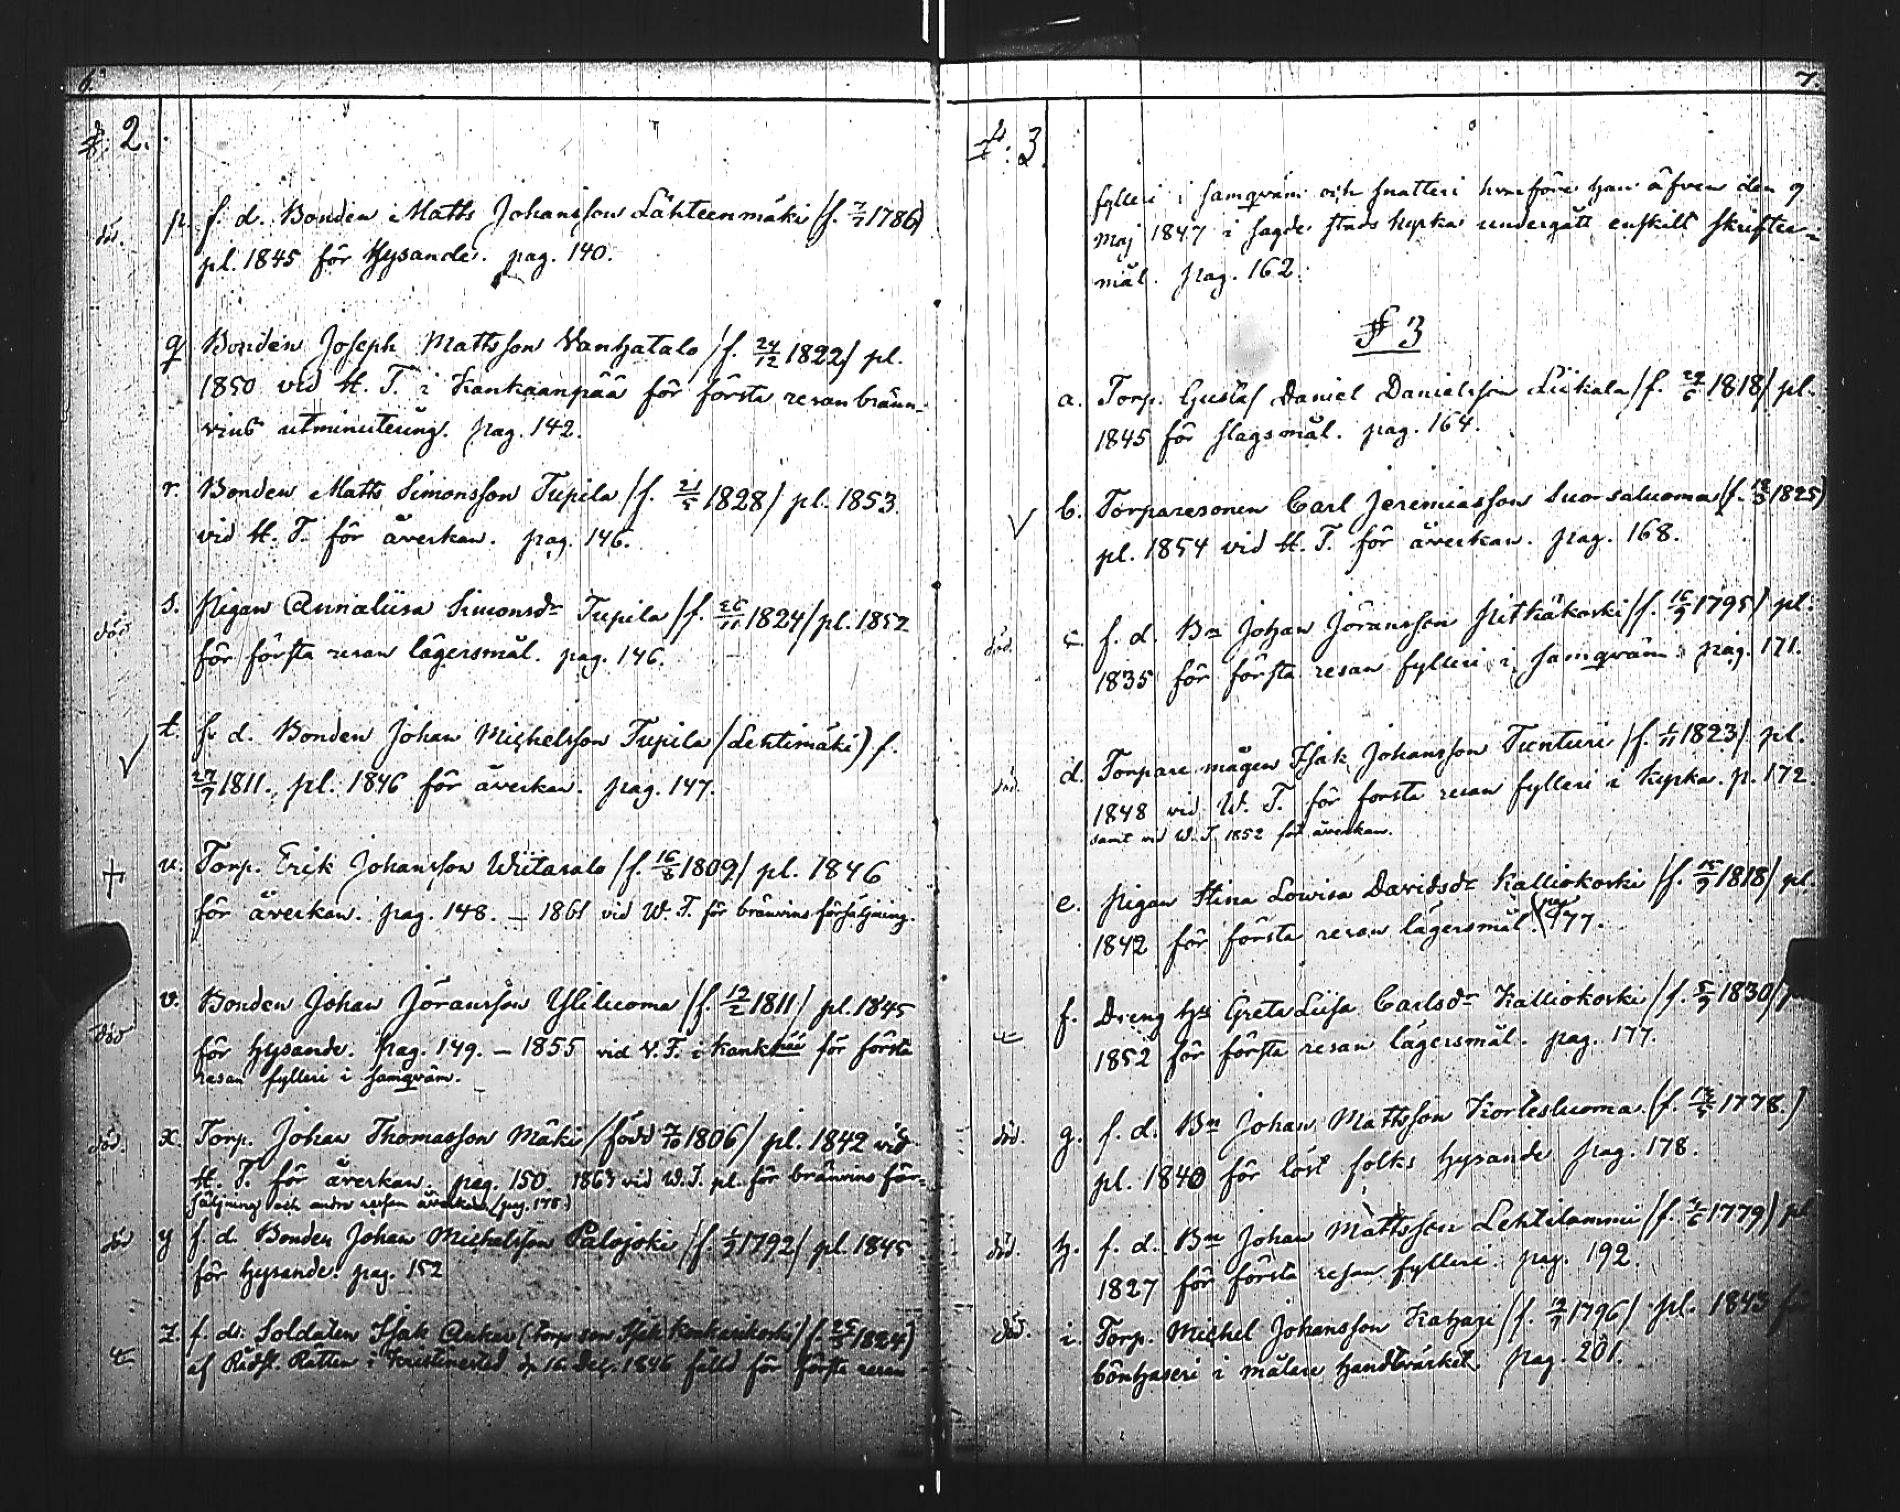 6.
№ 2.
död. p. f. d. Bonden Matts Johansson Lähteenmäki /f. 7/7 1786/
pl. 1845 för hysande. pag. 140.
q Bonden Joseph Mattsson Vanhatalo /f. 24/12 1822/ pl.
1850 vid H. T. i Kankaanpää för första resan bränn-
vins utminutering. pag. 142.
r. Bonden Matts Simonsson Tupila /f. 21/5 1828/ pl. 1853
vid H. T. för åverkan. pag. 146.
död s. Pigan Annaliisa Simonsdr Tupila /f. 26/11 1824/ pl. 1852
för första resan lägersmål. pag. 146.
t. f. d. Bonden Johan Michelsson Tupila /Lehtimäki) f.
27/9 1811. pl. 1846 för åverkan. pag. 147.
+ u. Torp. Erik Johansson Wiitasalo /f. 16/8 1809/ pl. 1846
för åverkan. pag. 148. – 1861 vid W. T. för bränvins försäljning.
död v. Bonden Johan Jöransson Yliluoma /f. 19/2 1811/ pl. 1845
för hysande. pag. 149. – 1855 vid V. T. i Kankpää för första
resan fylleri i samqväm.
död. x. Torp. Johan Thomasson Mäki /född 7/10 1806/ pl. 1842 vid
H. T. för åverkan. pag. 150. vid W. T. pl. för bränvins för-
säljning och andra resan åverkan (pag. 175.)
död y f. d. Bonden Johan Michelsson Palojoki /f. 1792/ pl. 1845
för hysande. pag. 152
z. f. d. Soldaten Isak Anker (torp. son Isak Konkarikoski) /f. 25/3 1824)
af Rådst. Rätten i Kristinestad d. 16 Dec. 1846 fälld för första resan
7.
№ 3.
fylleri i samqväm och snatteri hvarföre han äfven den 9
Maj 1847 i sagde stads kyrka undergått enskilt skrifter-
mål. pag. 162.
№ 3
a. Torp. Gustaf Daniel Danielsson Liikala /f. 29/6 1818/ pl.
1845 för slagsmål. pag. 164.
b. Torparesonen Carl Jeremiasson Suorsaluoma /f. 18/3 1825)
pl. 1854 vid H. T. för åverkan. pag. 168.
död. c. f. d. Bn Johan Jöransson Pitkäkoski /f. 16/9 1795/ pl.
1835 för första resan fylleri i samqväm. pag. 171.
död. d. Torpare mågen Isak Johansson Tunturi /f. 1/11 1823/ pl.
1848 vid W. T. för första resan fylleri i kyrka. p. 172.
samt vid W. T. 1852 för åverkan.
e. Pigan Stina Lowisa Davidsdr Kalliokoski /f. 15/9 1818/ pl.
1842 för första resan lägersmål. (pag. 177.
f. Dreng hs Greta Liisa Carlsdr Kalliokoski /f. 5/9 1830/
1852 för första resan lägersmål. pag. 177.
död. g. f. d. Bn Johan Mattsson Kortesluoma. /f. 1778.)
pl. 1840 för löst folks hysande pag. 178.
död. h. f. d. Bn Johan Mattsson Lehtilammi /f. 1779) pl
1827 för första resan fylleri. pag. 192.
död. i. Torp. Michel Johansson Katzari /f. 1796/ pl. 1843 för
bönhaseri i målare handtvärket pag. 201.